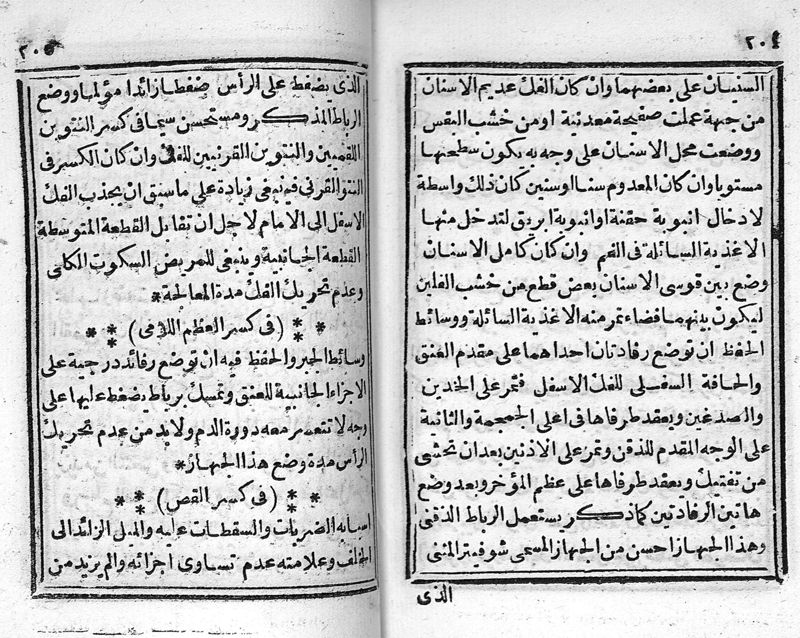 ٢٠٤
السنيان على بعضهما وان كان الفك عديم الاسنان
من جهة عملت صفيحة معدنية اومن خشب البقس
ووضعت محل الاسنان على وجه به يكون سطحها
مستويا وان كان المعدوم سنا اوسنين كان ذلك واسطة
لادخال انبوبة حقنة اوانبوبة ابريق لتدخل منها
الاغذية السائلة فى الفم وان كان كامل الاسنان
وضع بين قوسى الاسنان بعض قطع من خشب الفلين
ليكون بينهما فضاء تمر منه الاغذية السائلة ووسائط
الحفظ ان توضع رفادتان احداهما على مقدم العنق
والحافة السفلى للفك الاسفل فتمر على الخدين
والصدغين ويعقد طرفاها فى اعلى الجمجمة والثانية
على الوجه المقدم للذقن وتمر على الاذنين بعد ان تحشى
من تفتيك ويعقد طرفاها على عظم المؤخر وبعد وضع
هاتين الرفادتين كما ذكر يستعمل الرباط الذقنى
وهذا الجهاز احسن من الجهاز المسمى شوفيتر المثنى
الذى
٢٠٥
الذى يضغط على الرأس ضغطا زائدا مؤلما ووضع
الرباط المذكر ومستحسن سيما فى كسر النتوين
اللقميين والنتوين القرنيين للفك وان كان الكسر فى
النتو القرنى فينبغى زيادة على ماسبق ان يجذب الفك
الاسفل الى الامام لاجل ان تقابل القطعة المتوسطة
القطعة الجانبية وينبغى للمريض السكوت الكلى
وعدم تحريك الفك مدة المعالجة *
* * (فى كسر العظم اللامى) * *
وسائط الجبر والحفظ فيه ان توضع رفائد درجية على
الاجزاء الجانبية للعنق وتمسك برباط يضغط عليها على
وجه لا تتعسر معه دورة الدم ولا بد من عدم تحريك
الرأس مدة وضع هذا الجهاز *
* * (فى كسر القص) * *
اسبابه الضربات والسقطات عليه والميل الزائد الى
الخلف وعلامته عدم تساوى اجزائه والم يزيد من